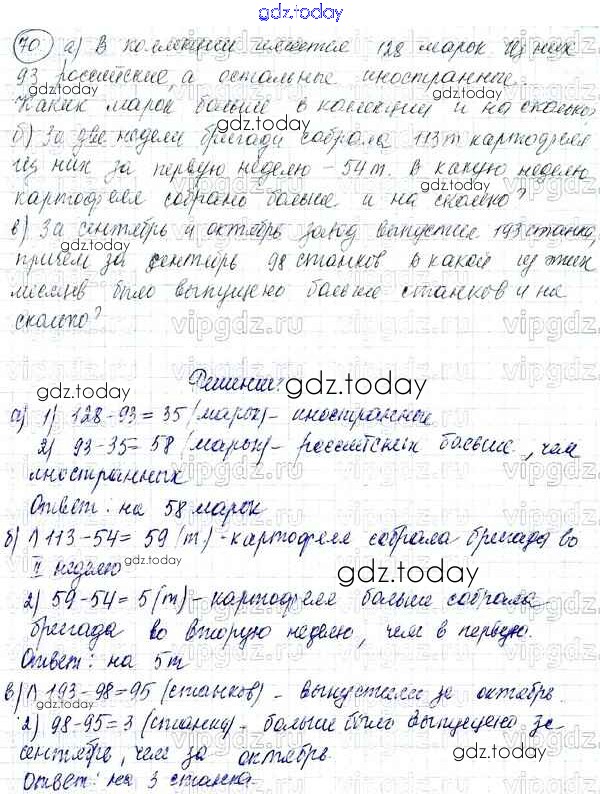 gdz.today
70 а) В коллекции имеется 128 марок. Из них
93 российские, а остальные иностранные.
Каких марок больше в коллекции и на сколько?
gdz.today
б) За две недели бригада собрала 113 т картофеля
gdz.today
Из них за первую неделю - 54 т. В какую неделю
картофеля собрано больше и на сколько?
gdz.today
в) За сентябрь и октябрь завод выпустил 193 станка,
gdz.today
причём за сентябрь 98 станков. В какой из этих
месяцев было выпущено больше станков и на
сколько?
vipgdz.ru
Решение:
gdz.today
gdz.today
а) 1) 128-93=35 (марок) - иностранные
2) 93-35=58 (марок) - российских больше, чем
иностранных
Ответ: на 58 марок
б) 1) 113-54=59 (т) - картофеля собрала бригада во
II неделю
gdz.today
2) 59-54=5 (т) - картофеля больше собрала
бригада во вторую неделю, чем в первую.
Ответ: на 5 т
gdz.today
в) 1) 193-98=95 (станков) - выпустили за октябрь.
2) 98-95=3 (станка) - больше было выпущено за
сентябрь, чем за октябрь.
gdz.today
Ответ: на 3 станка.